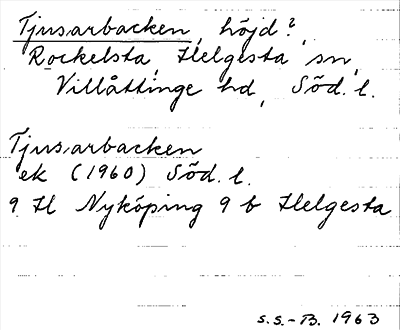 Tjusarbacken, höjd?,
Rockelsta, Helgesta sn,
Villåttinge hd, Söd. l.
Tjusarbacken
ek (1960) Söd. l.
9 H Nyköping 9 b Helgesta
S.S.-B. 1963